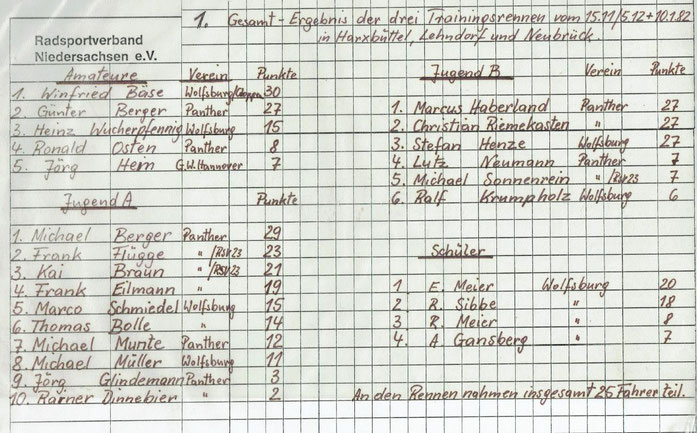 1. Gesamt-Ergebnis der drei Trainingsrennen vom 15.11/5.12+10.1.82
in Harxbüttel, Lehndorf und Neubrück.
Radsportverband
Niedersachsen e.V.
Amateure Verein Punkte
1. Winfried Bäse Wolfsburg 30
2. Günter Berger Panther 27
3. Heinz Wucherpfennig Wolfsburg 15
4. Ronald Osten Panther 8
5. Jörg Hein G.W.Hannover 7
Jugend A Punkte
1. Michael Berger Panther 29
2. Frank Flügge " /RSV23 23
3. Kai Braun " /RSV23 21
4. Frank Eilmann " 19
5. Marco Schmiedel Wolfsburg 15
6. Thomas Bolle " 14
7. Michael Munte Panther 12
8. Michael Müller Wolfsburg 11
9. Jörg Glindemann Panther 3
10. Rainer Dinnebier " 2
Jugend B Verein Punkte
1. Marcus Haberland Panther 27
2. Christian Riemekasten " 27
3. Stefan Henze Wolfsburg 27
4. Lutz Neumann Panther 7
5. Michael Sonnenrein " /RSV23 7
6. Ralf Krumpholz Wolfsburg 6
Schüler
1 E. Meier Wolfsburg 20
2 R. Sibbe " 18
3 R. Meier " 8
4. A. Gansberg " 7
An den Rennen nahmen insgesamt 25 Fahrer teil.